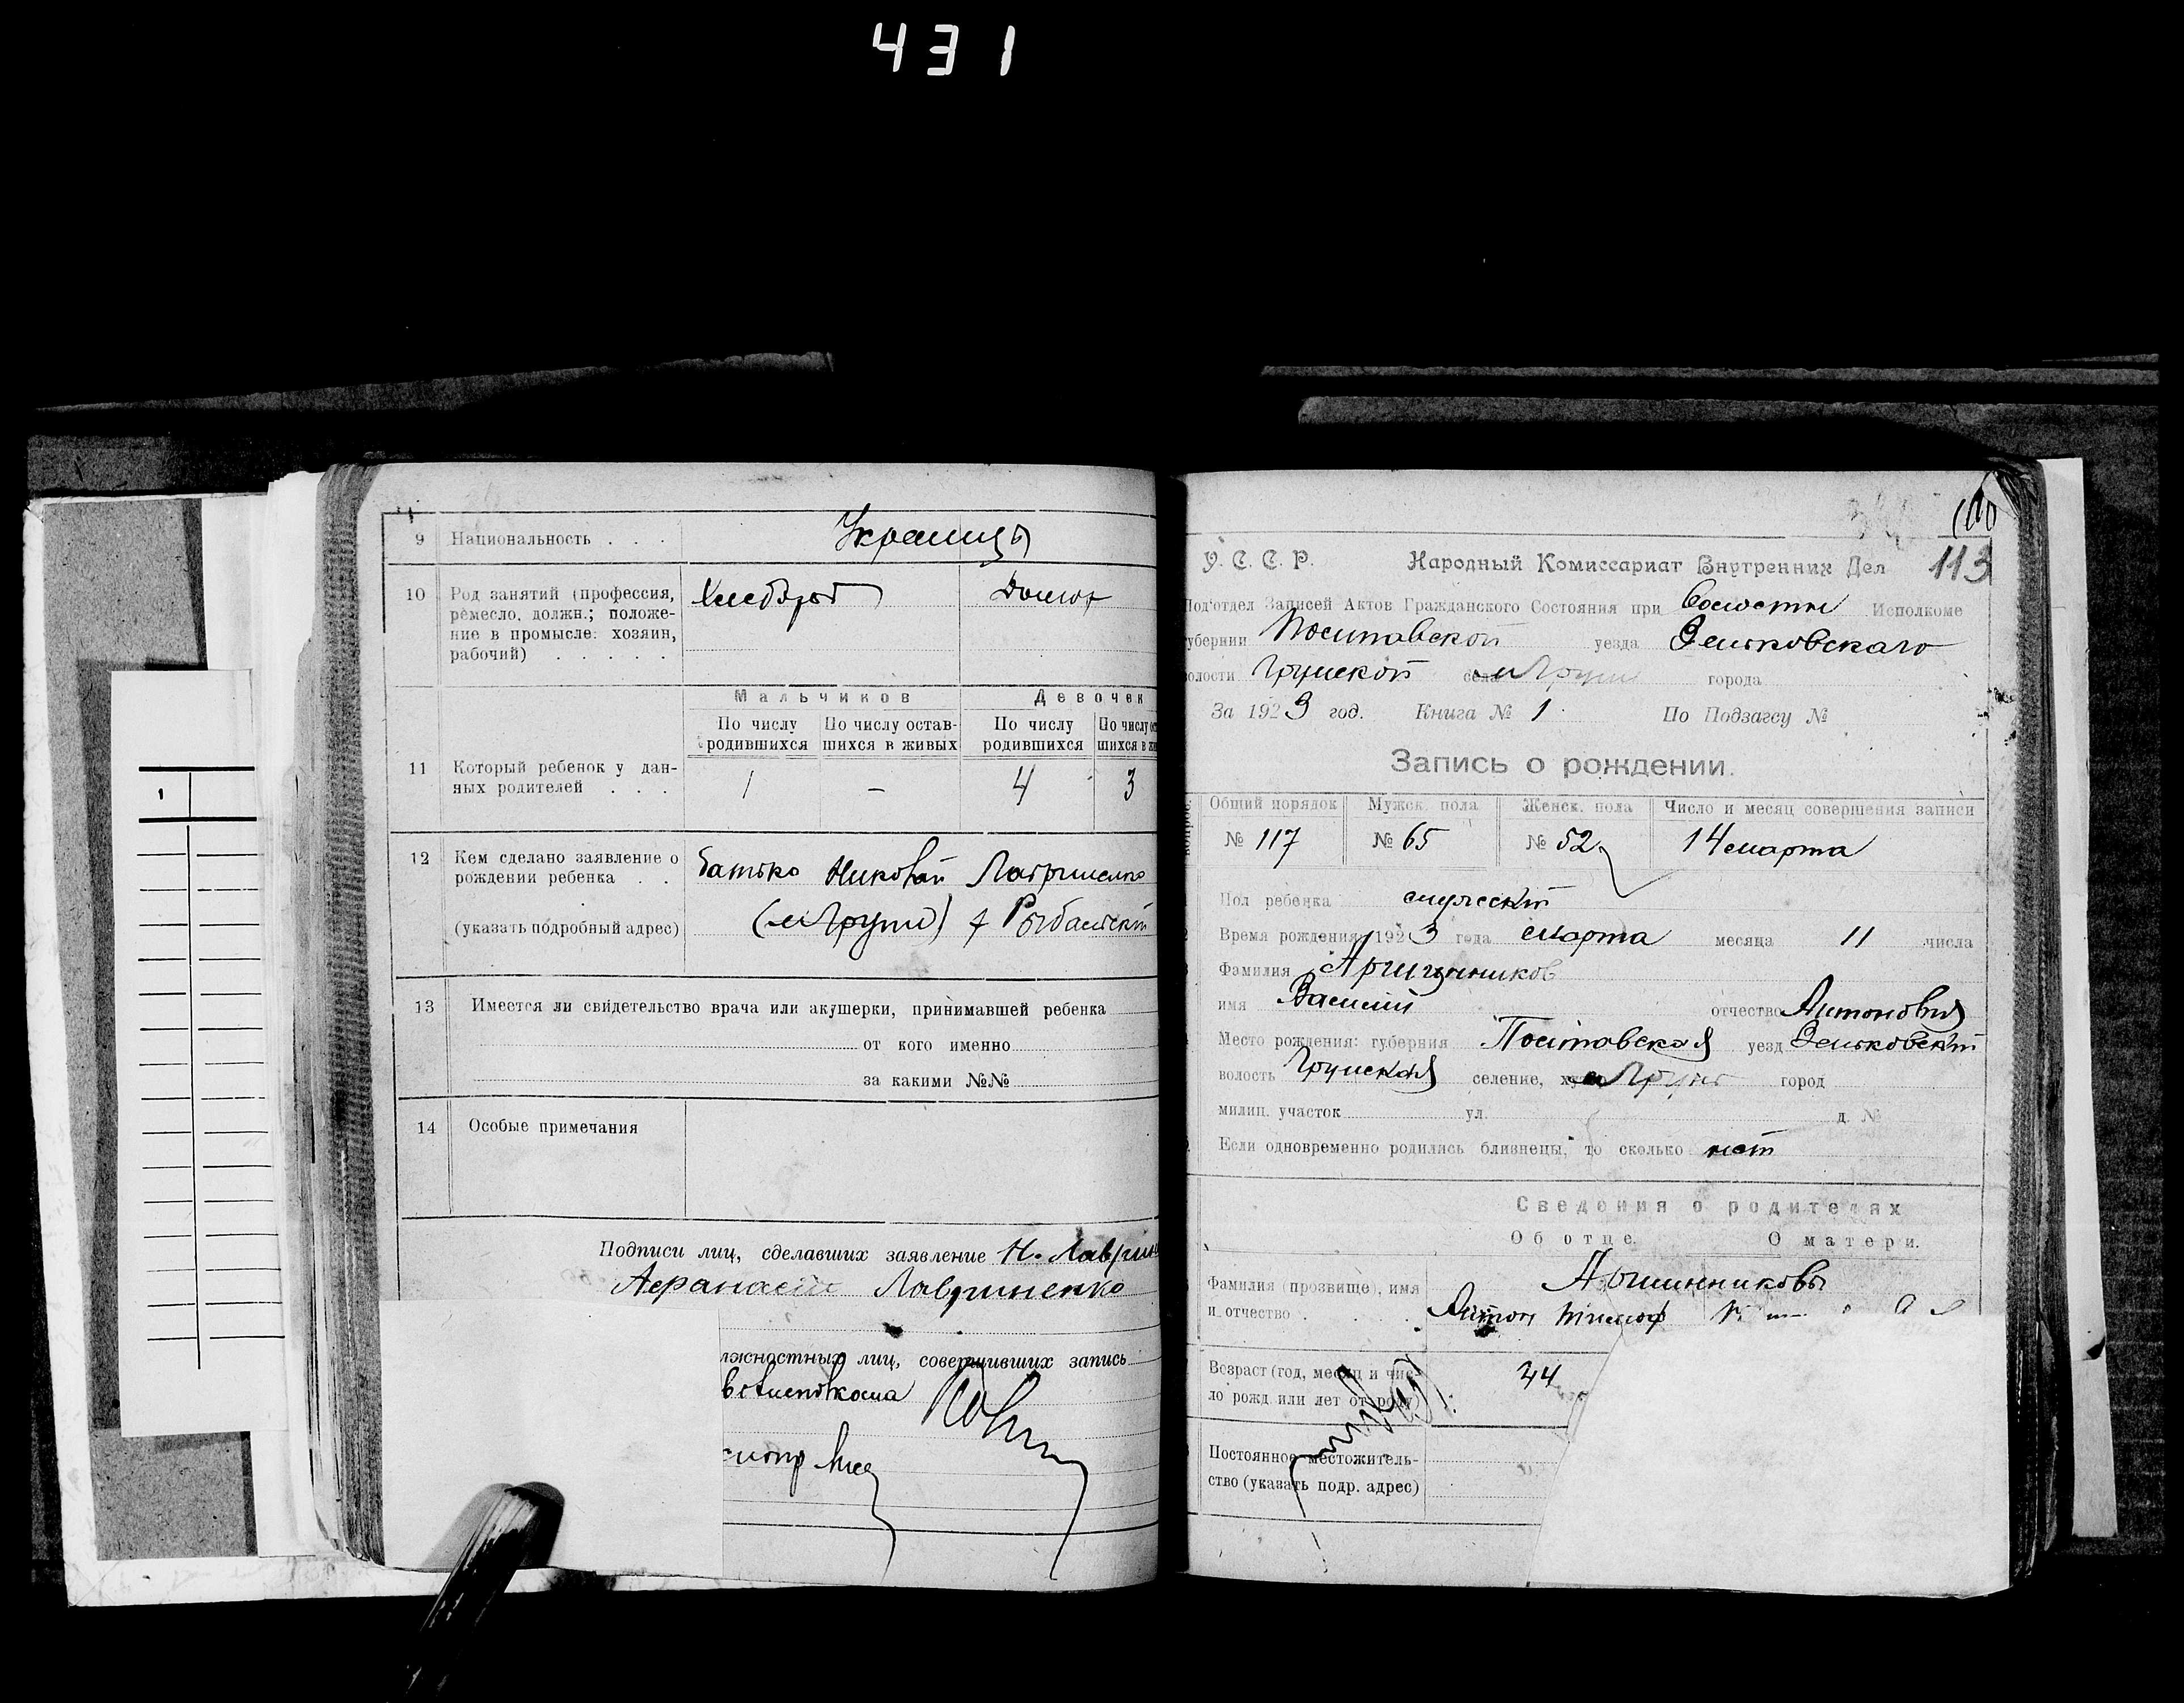 431
9 Национальность . . . Украинцы
10 Род занятий (профессия, ремесло, должн.; положе-
ние в промысле: хозяин,
рабочий) . . . . .
Хлебороб Домох
Мальчиков Девочек
По числу родившихся По числу остав-шихся в живых По числу родившихся По числу ос
шихся в жи
11 Который ребенок у дан-
ных родителей . . . 1 – 4 3
12 Кем сделано заявление о
рождении ребенка . . Батько Николай Лавриненко
(указать подробный адрес) (м Грунь)
13 Имеется ли свидетельство врача или акушерки, принимавшей ребенка
от кого именно
за какими №№
14 Особые примечания
Подписи лиц, сделавших заявление Н. Лаврин
Афанасий Лавриненко
лжностных лиц, совершивших запись
100
У. С. С. Р. Народный Комиссариат Внутренних Дел 113
Под'отдел Записей Актов Гражданского Состояния при Волостн Исполкоме
убернии Полтавской уезда Зеньковскаго
олости Грунской села м Грунь города
За 1923 год. Книга № 1 По Подзагсу №
Запись о рождении.
Общий порядок Мужск. пола Женск. пола Число и месяц совершения записи
№ 117 № 65 № 52 14 марта
Пол ребенка мужской
Время рождения 1923 года марта месяца 11 числа
Фамилия Аршинников
имя Василий отчество Антонович
Место рождения: губерния Полтавская уезд Зеньковский
волость Грунская селение, м Грунь город
милиц. участок ул. д. №
Если одновременно родились близнецы, то сколько нет
Сведения о родителях
Об отце. О матери.
Фамилия (прозвище), имя
и отчество . . . . Аршинниковы
Антон Тимоф
Возраст (год, месяц и чис-
ло рожд. или лет от роду) 34
Постоянное местожитель-
ство (указать подр. адрес)
1